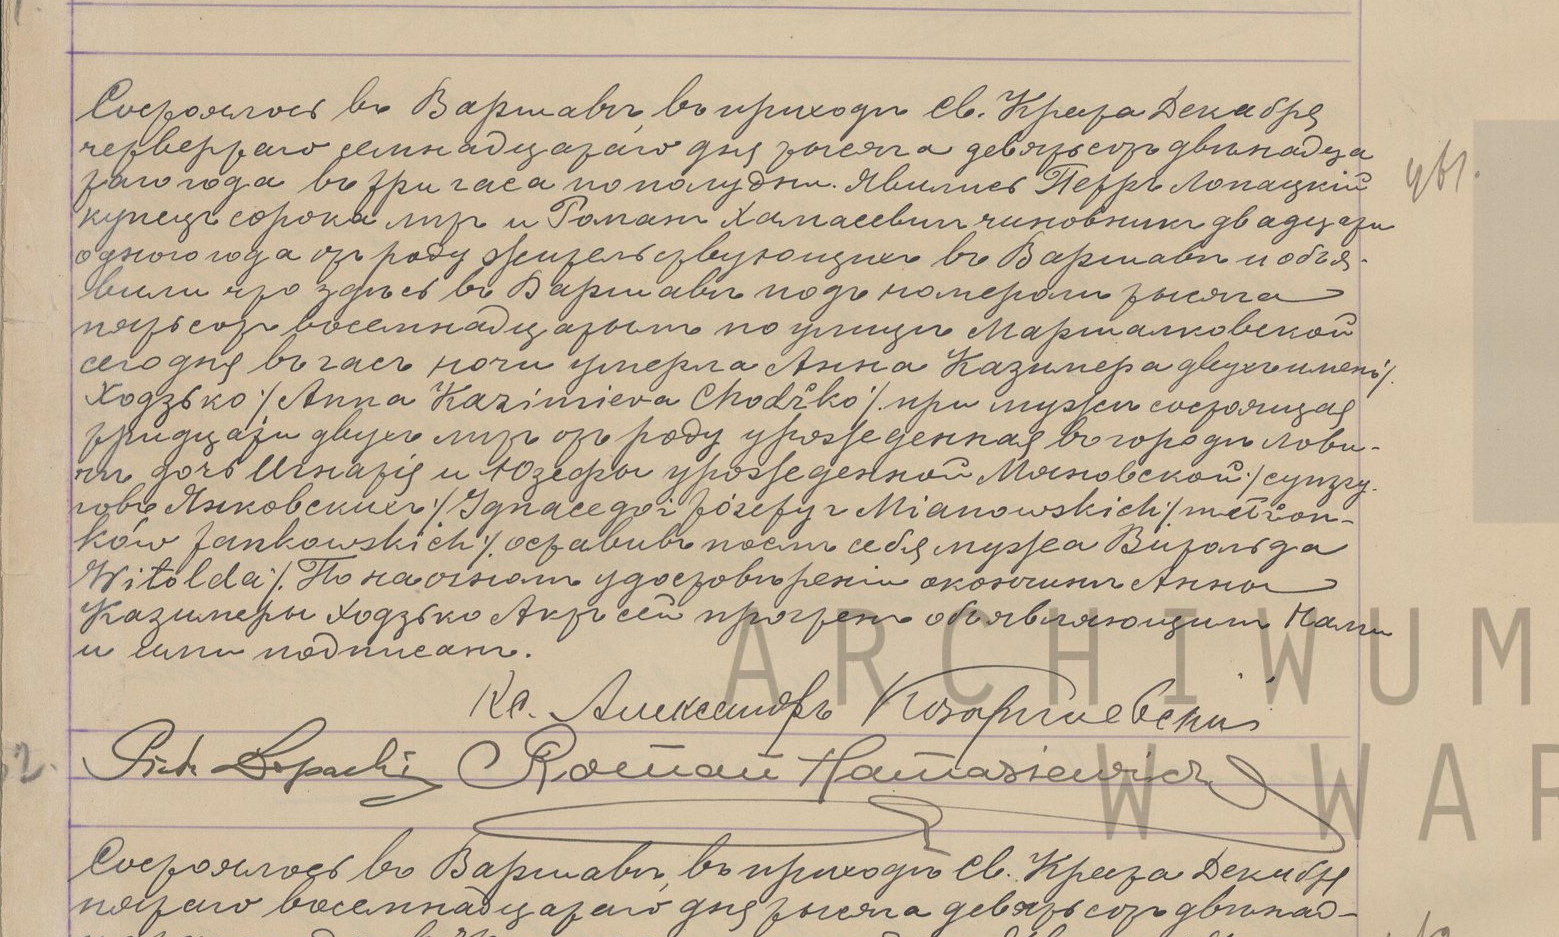 Состоялось въ Варшавѣ, въ приходѣ Св. Креста Декабря
четвертаго семнадцатаго дня тысяча девятьсотъ двѣнадца
таго года въ три часа по полудни. Явились Петръ Лопацкій
купецъ сорока лѣтъ и Романъ Хамасевичъ чиновникъ двадцати
одного года отъ роду жительствующихъ въ Варшавѣ и объя-
вили что здѣсь въ Варшавѣ подъ номеромъ тысяча
пятьсотъ восемнадцатымъ по улицѣ Маршалковской
сего дня въ часъ ночи умерла Анна Казимера двухъ именъ/.
Ходзько /Anna Kazimiera Chodźko/. при мужѣ состоящая
тридцати двухъ лѣтъ отъ роду урожденная въ городѣ Лови-
чѣ дочь Игнатія и Юзефы урожденной Мяновской /супру-
говъ Янковскихъ /Ignacego i Józefy z Mianowskich/. małżon-
ków Jankowskich/. оставивъ послѣ себя мужа Витольда
Witolda/. По наочномъ удостовѣреніи о кончинѣ Анны
Казимеры Ходзько Актъ сей прочтенъ объявляющимъ Нами
и ими подписанъ.
Кс. Александръ
ARCHIWUM
Piotr Łopacki Roman Hamasiewicz
W WAR
Состоялось въ Варшавѣ, въ приходѣ Св. Креста Декабря
пятаго восемнадцатаго дня тысяча девятьсотъ двѣнад-